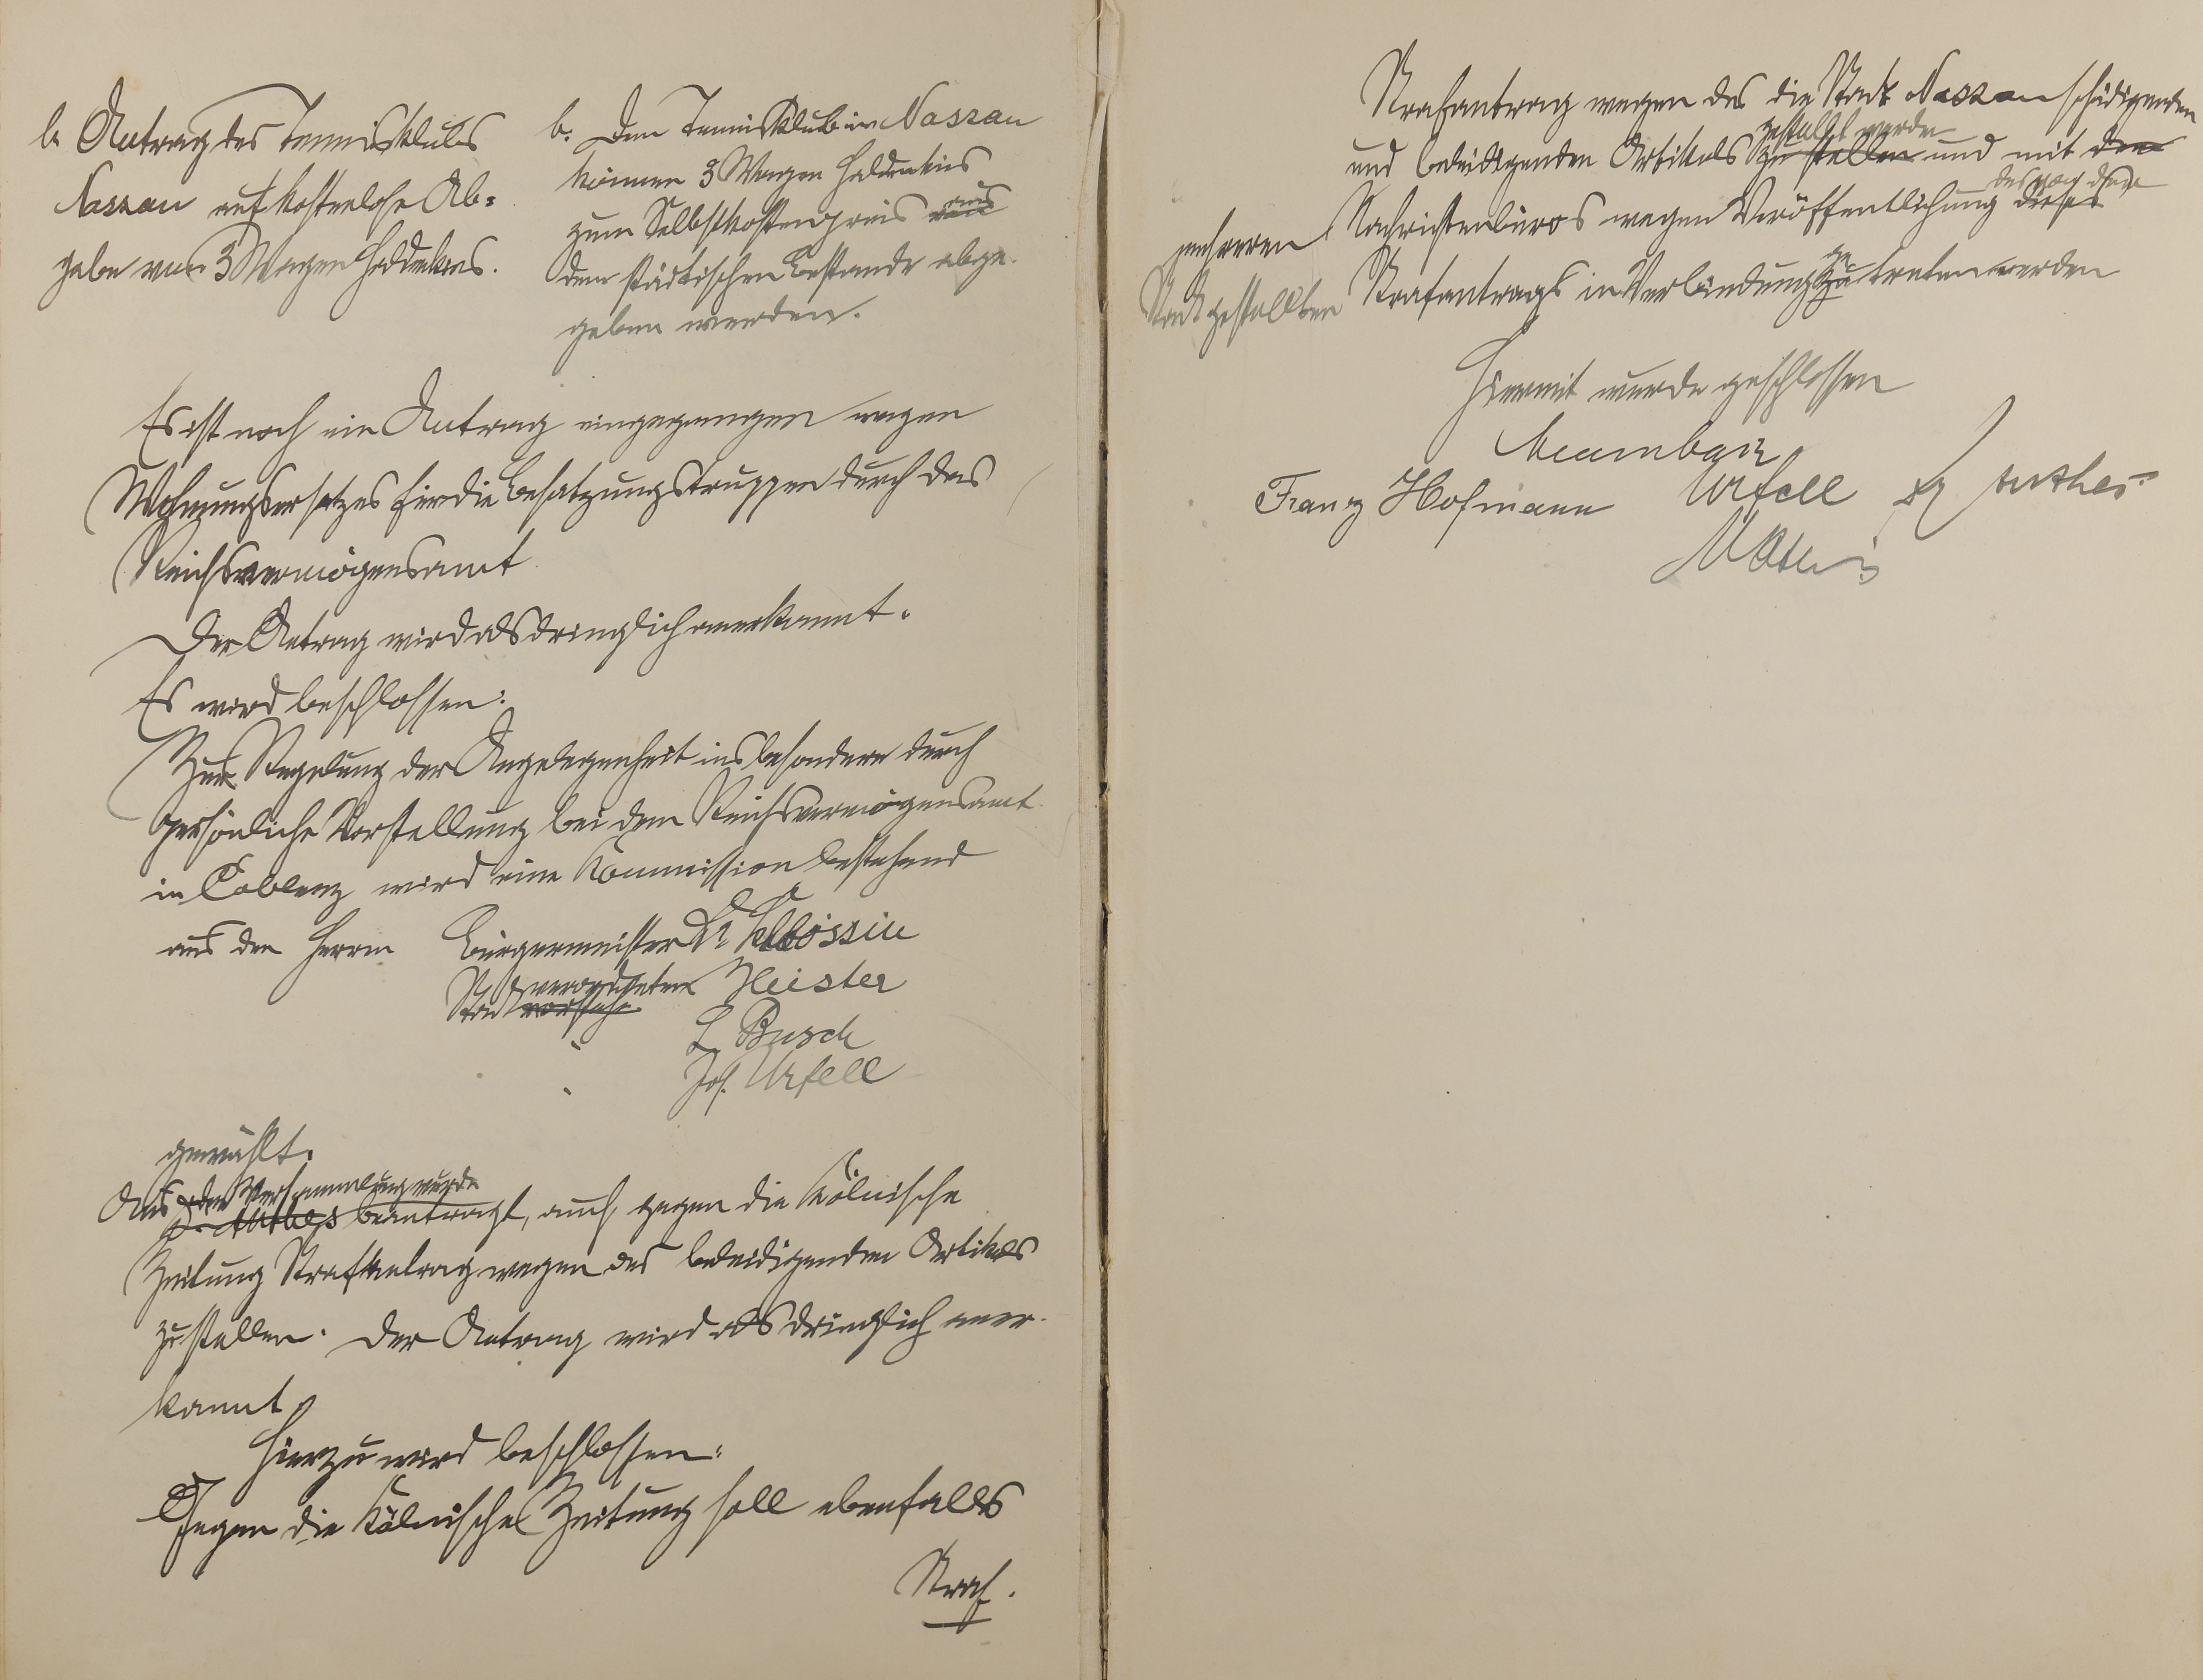 b. Antrag des Tennisklubs
Nassau auf kostenlose Ab=
gabe von 3 Wagen
b. Dem Tennisklub in Nassau
können 3 Wagen
zum Selbstkostenpreis aus
dem städtischen Bestande abge-
geben werden.
Es ist noch ein Antrag eingegangen wegen
Wohnungsersatzes für die Besatzungstruppen durch das
Reichsvermögensamt
Der Antrag wird als dringlich anerkannt.
Es wird beschlossen:
Zur Regelung der Angelegenheit insbesondere durch
persönliche Vorstellung bei dem Reichsvermögensamt
in Coblenz wird eine Kommission bestehend
aus den Herrn Bürgermeister Dr
Stadtverordneten Heister
L. Busch
Jos. Urfell
gewählt.
Aus der Versammlung wurde
beantragt, auch gegen die Kölnische
Zeitung Strafantrag wegen des beleidigenden Artikels
zu stellen. Der Antrag wird als dringlich aner-
kannt.
Hierzu wird beschlossen:
Gegen die Kölnische Zeitung soll ebenfalls
Straf.
Strafantrag wegen des die Stadt Nassau schädigenden
gestellt werden
und beleidigenden Artikels zu stellen und mit den
mehreren Nachrichtenbüros wegen Veröffentlichung dieses
Stadt gestellten Strafantrags in Verbindung getreten werden
Hiermit wurde geschlossen
Franz Hofmann Urfell Anthes